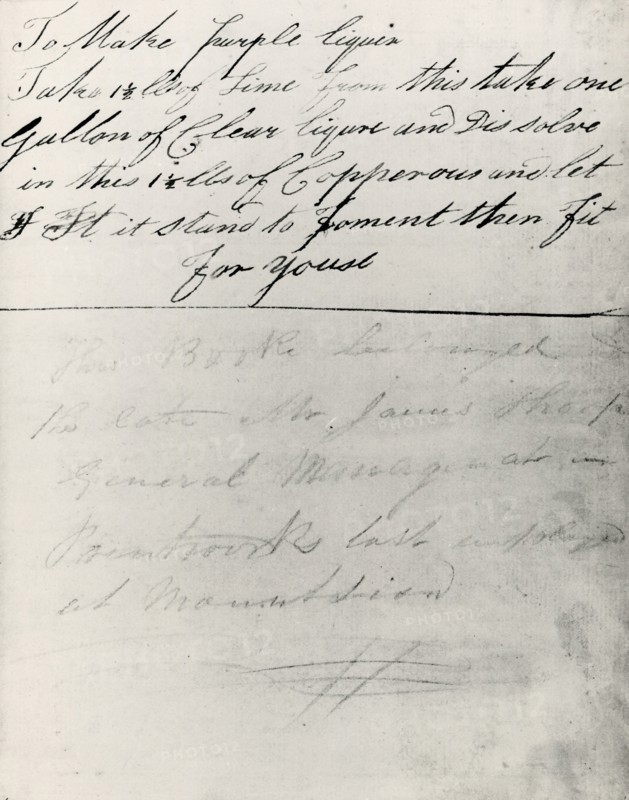 To Make purple liquir
Take 1½ lbs of Lime from this take one
Gallon of Clear liqure and Dissolve
in this 1½ lbs of Copperous and let
It it stand to foment then fit
For youse
This Booke belonged
the late Mr James
General Manager at
Printworks last employed
at Mount Sion